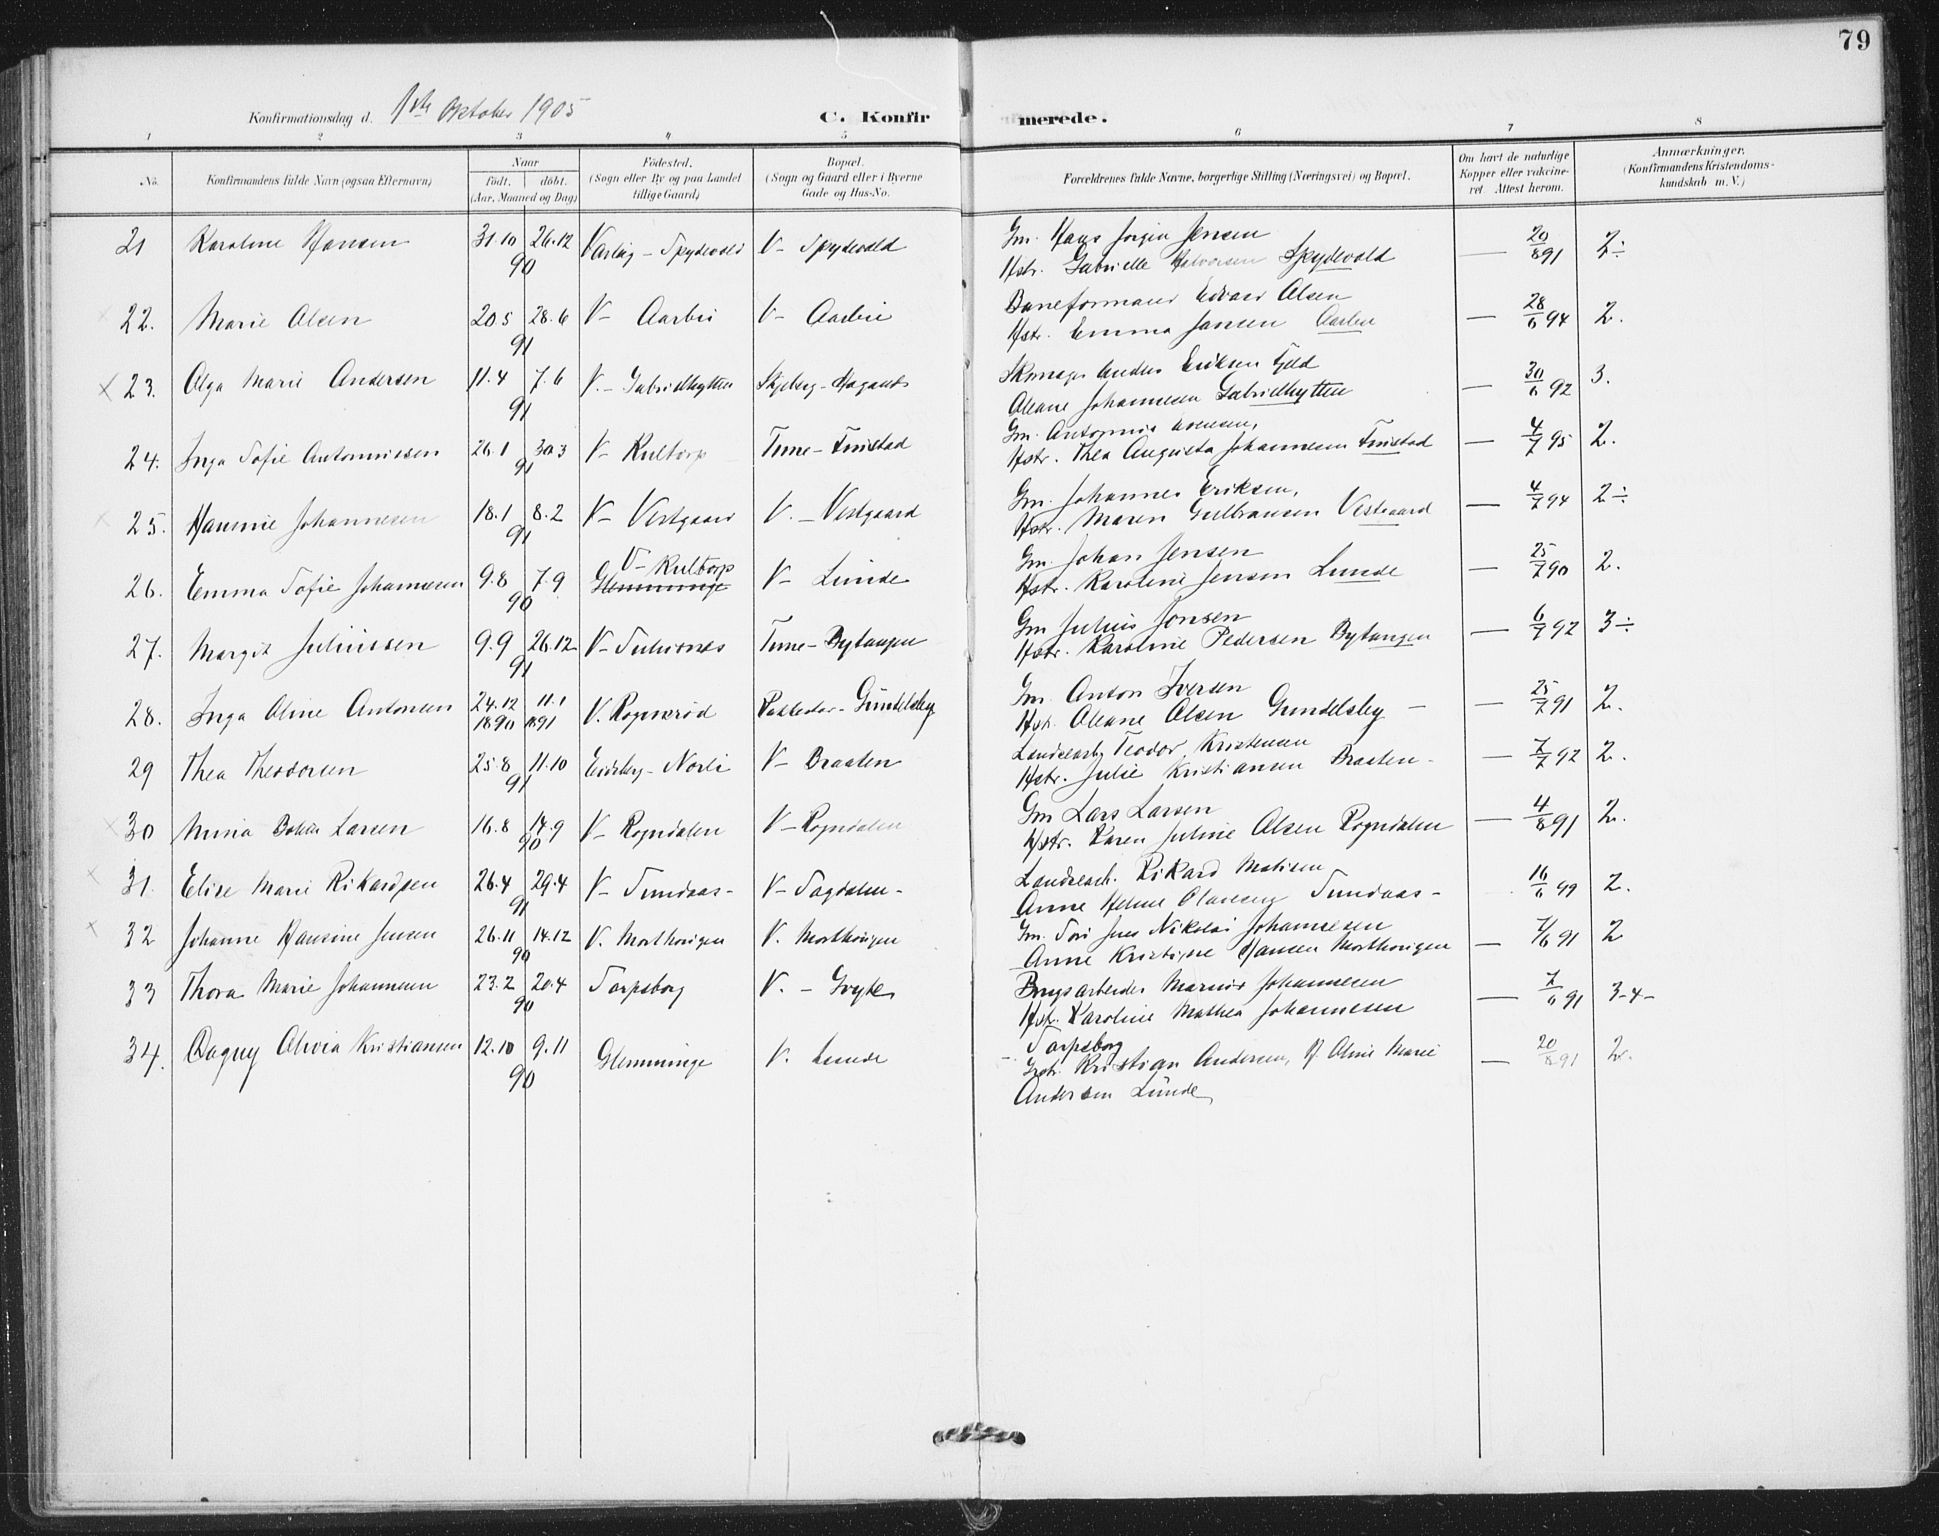 79
Konfirmationsdag d. 1ste Oktober 1905
C. Konfirmerede.
1 2 3 4 5 6 7 8
No. Konfirmandens fulde Navn (ogsaa Efternavn) Naar født, døbt. (Aar, Maaned og Dag) Fødested. (Sogn eller By og paa Landet tillige Gaard) Bopæl. (Sogn og Gaard eller i Byerne Gade og Hus-No. Forældrenes fulde Navne, borgerlige Stilling (Næringsvei) og Bopæl. Om havt de naturlige Kopper eller vakcineret. Attest herom. Anmærkninger. (Konfirmandens Kristendomskundskab m. V.)
21 Karoline Hansen 31.10 26.12 90 Varteig - Spydevold V- Spydevold Gm. Hans Jørgen Jensen
Hstr. Gabrielle Halvorsen Spydevold — 20/8 91 2÷
22. Marie Olsen 20.5 28.6 91 V- Aarbu V- Aarbu Baneformand Edvard Olsen
Hstr. Emma Jansen Aarbu — 28/6 94 2.
23. Olga Marie Andersen 11.4 7.6 91 V.- Gabrielhytten Skjeberg - Anders Eriksen
Oleane Johannesen Gabrielhytten — 30/6 92 3.
24. Inga Sofie Antonnissen 26.1 30.3 91 V- Kultorp Tune - Tuestad Gm.
Hstr. Thea Augusta Johannesen — 4/7 95 2.
25. Hannie Johannesen 18.1 8.2 91 V- Vestgaard V.- Vestgaard Gm. Johannes Eriksen,
Hstr. Maren Gulbransen Vestgaard — 4/7 94 2÷
26. Emma Sofie Johannesen 9.8 7.9 90 V- Kultorp
Glemminge V- Lunde Gm. Johan Jensen
Hstr. Karoline Jensen Lunde — 25/7 90 2.
27. Margit Juliussen 9.9 26.12 91 V- Tune - Bytangen Gm Julius Jonsen
Hstr. Karoline Pedersen Bytangen — 6/7 92 3÷
28. Inga Oline Antonsen 24.12 1890 11.1 1891 V. Rognerød Rakkestad - Gundelsby Gm. Anton Iversen
Hstr. Oleane Olsen Gundelsby — — 25/7 91 2.
29 Thea Theodorsen 25.8 11.10 91 Eidsberg - Norli V- Braaten Landsearb. Teodor Kristensen
Hstr. Julie Kristiansen Braaten - — 7/7 92 2.
30 Larsen 16.8 14.9 90 V- Rogndalen V- Rogndalen Gm Lars Larsen
Hstr. Karen Juline Olsen Rogndalen — 4/8 91 2.
31. Elise Marie Rikardsen 26.4 29.4 91 V- Tundaas - V- Landsearb. Rikard Matisen
Anne Helene Olausen Tundaas - 16/6 99 2.
32 Johanne Hansine Jensen 26.11 14.12 90 V. V. Gm. Nikolai Johannesen
Anne Kristine Hansen — 7/6 91 2
33 Thora Marie Johannesen 23.2 20.4 90 Sarpsborg V. - Brugsarbeider Marnus Johannesen
Hstr. Karoline Mathea Johannesen
Sarpsborg — 7/6 91 3-4-
34. Dagny Olivia Kristiansen 12.10 9.11 90 Glemminge V. Lunde Kristian Andersen, H. Oline Marie
Andersen Lunde — 20/8 91 2.